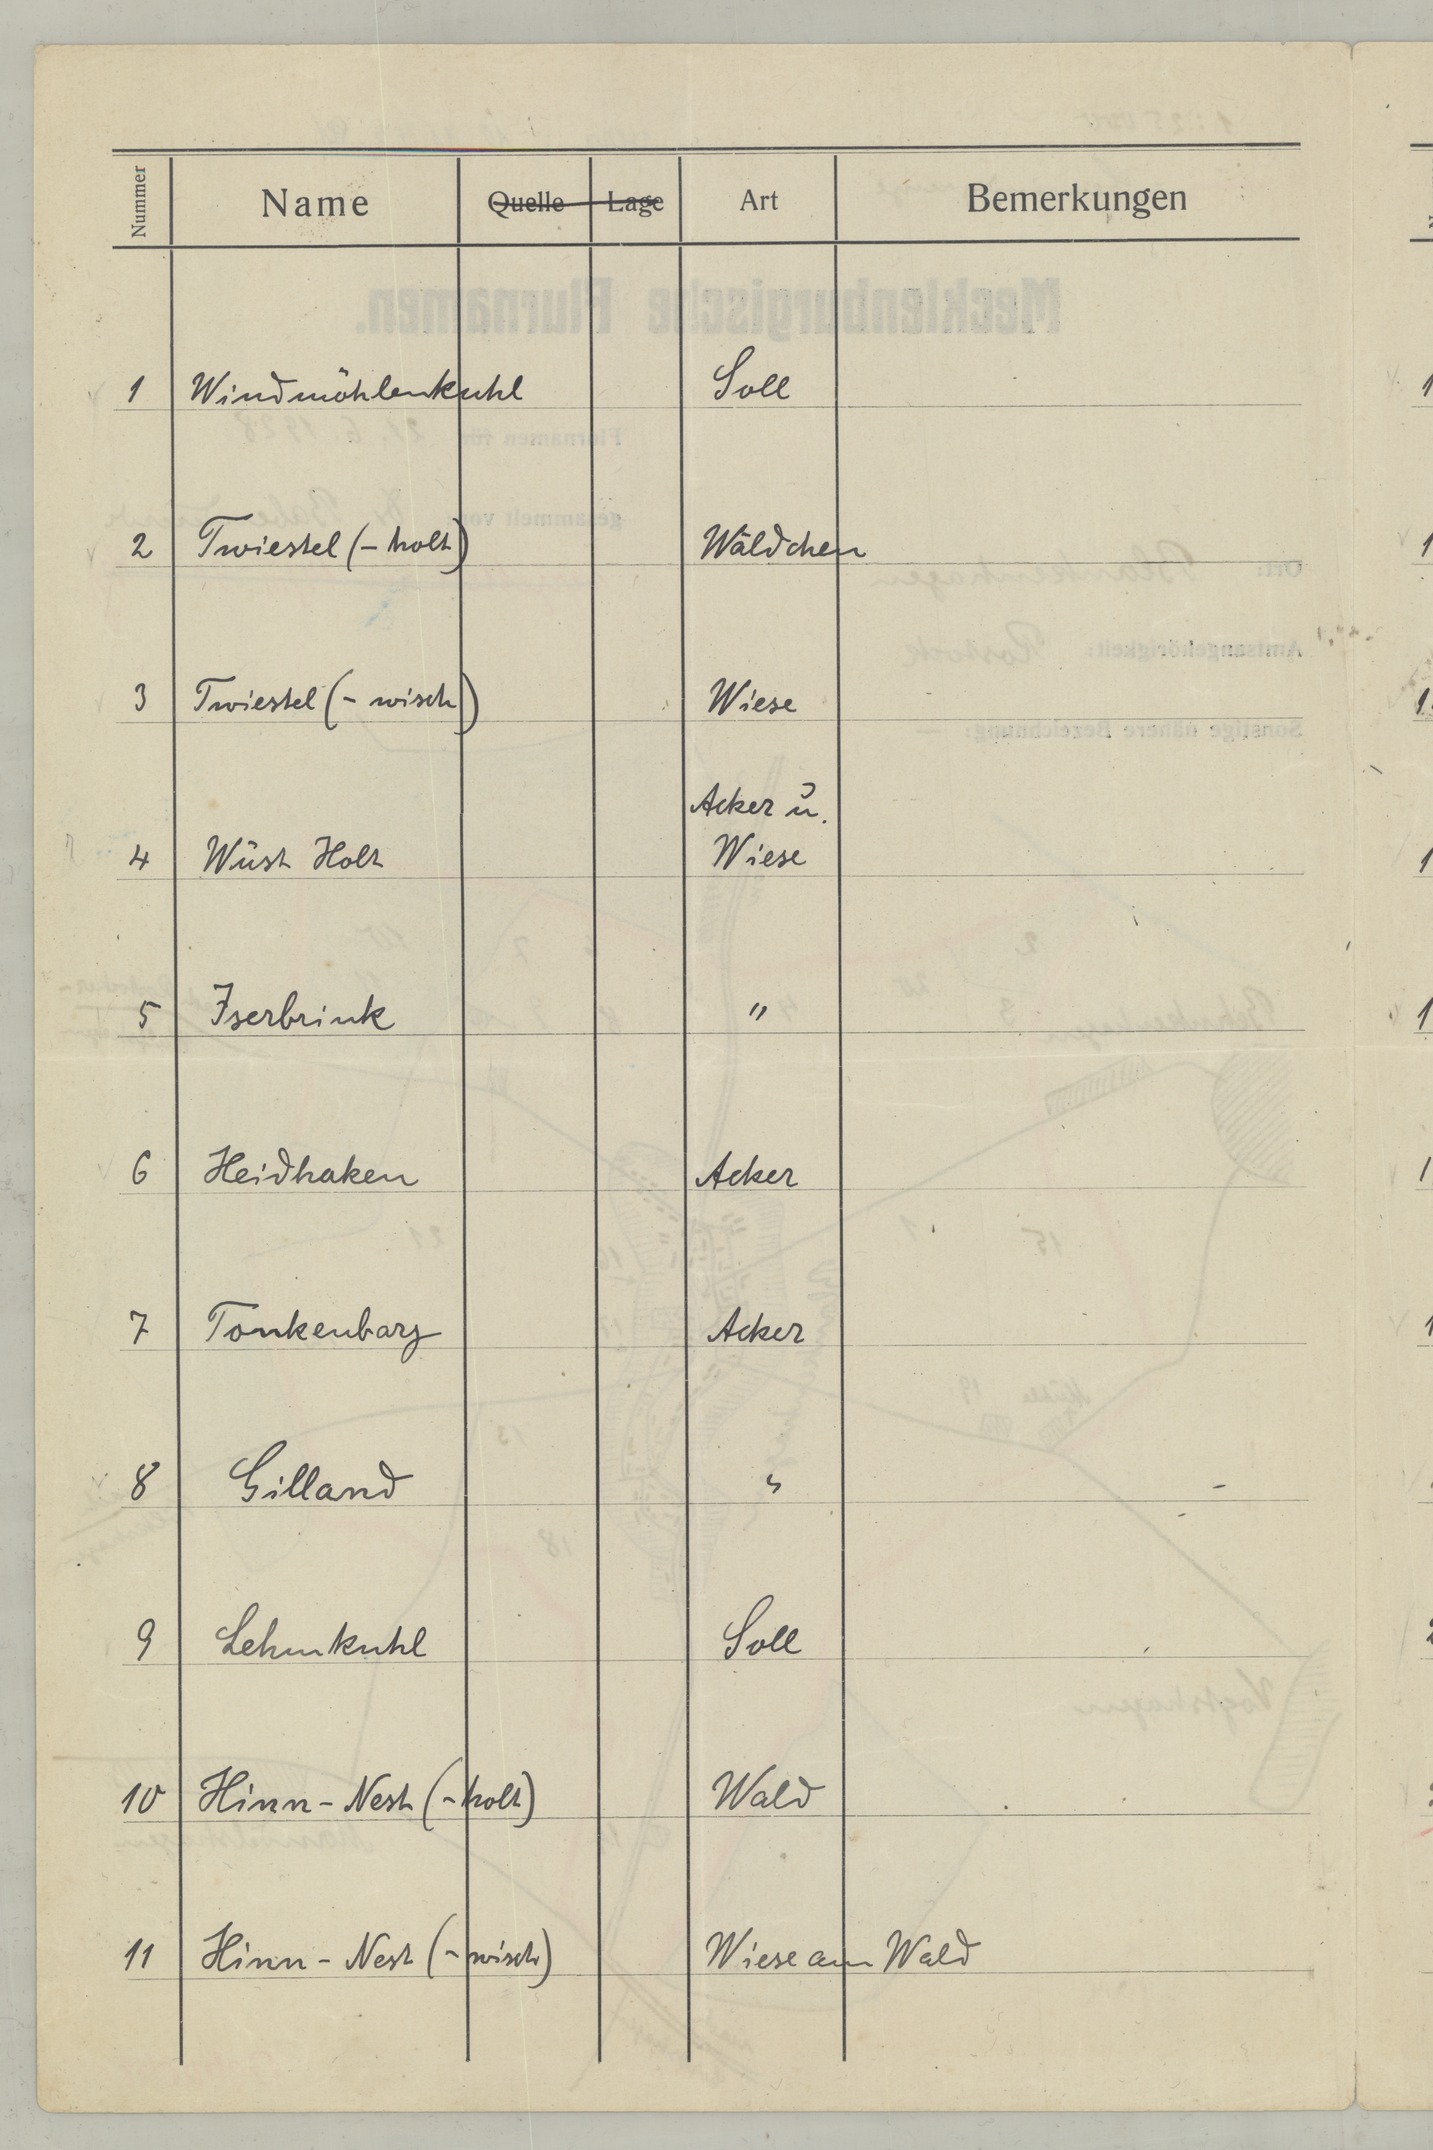 Nummer Name Quelle Lage Art Bemerkungen
1 Windmöhlenkuhl Soll
2 Twiestel (-holt) Wäldchen
3 Twiestel (-wisch) Wiese
Acker u.
4 Wüst Holt Wiese
5 Iserbrink "
6 Heidhaken Acker
7 Tonkenbarg Acker
8 Gilland "
9 Lehmkuhl Soll
10 Hinn-Nest (-holt) Wald
11 Hinn-Nest (-wisch) Wiese am Wald